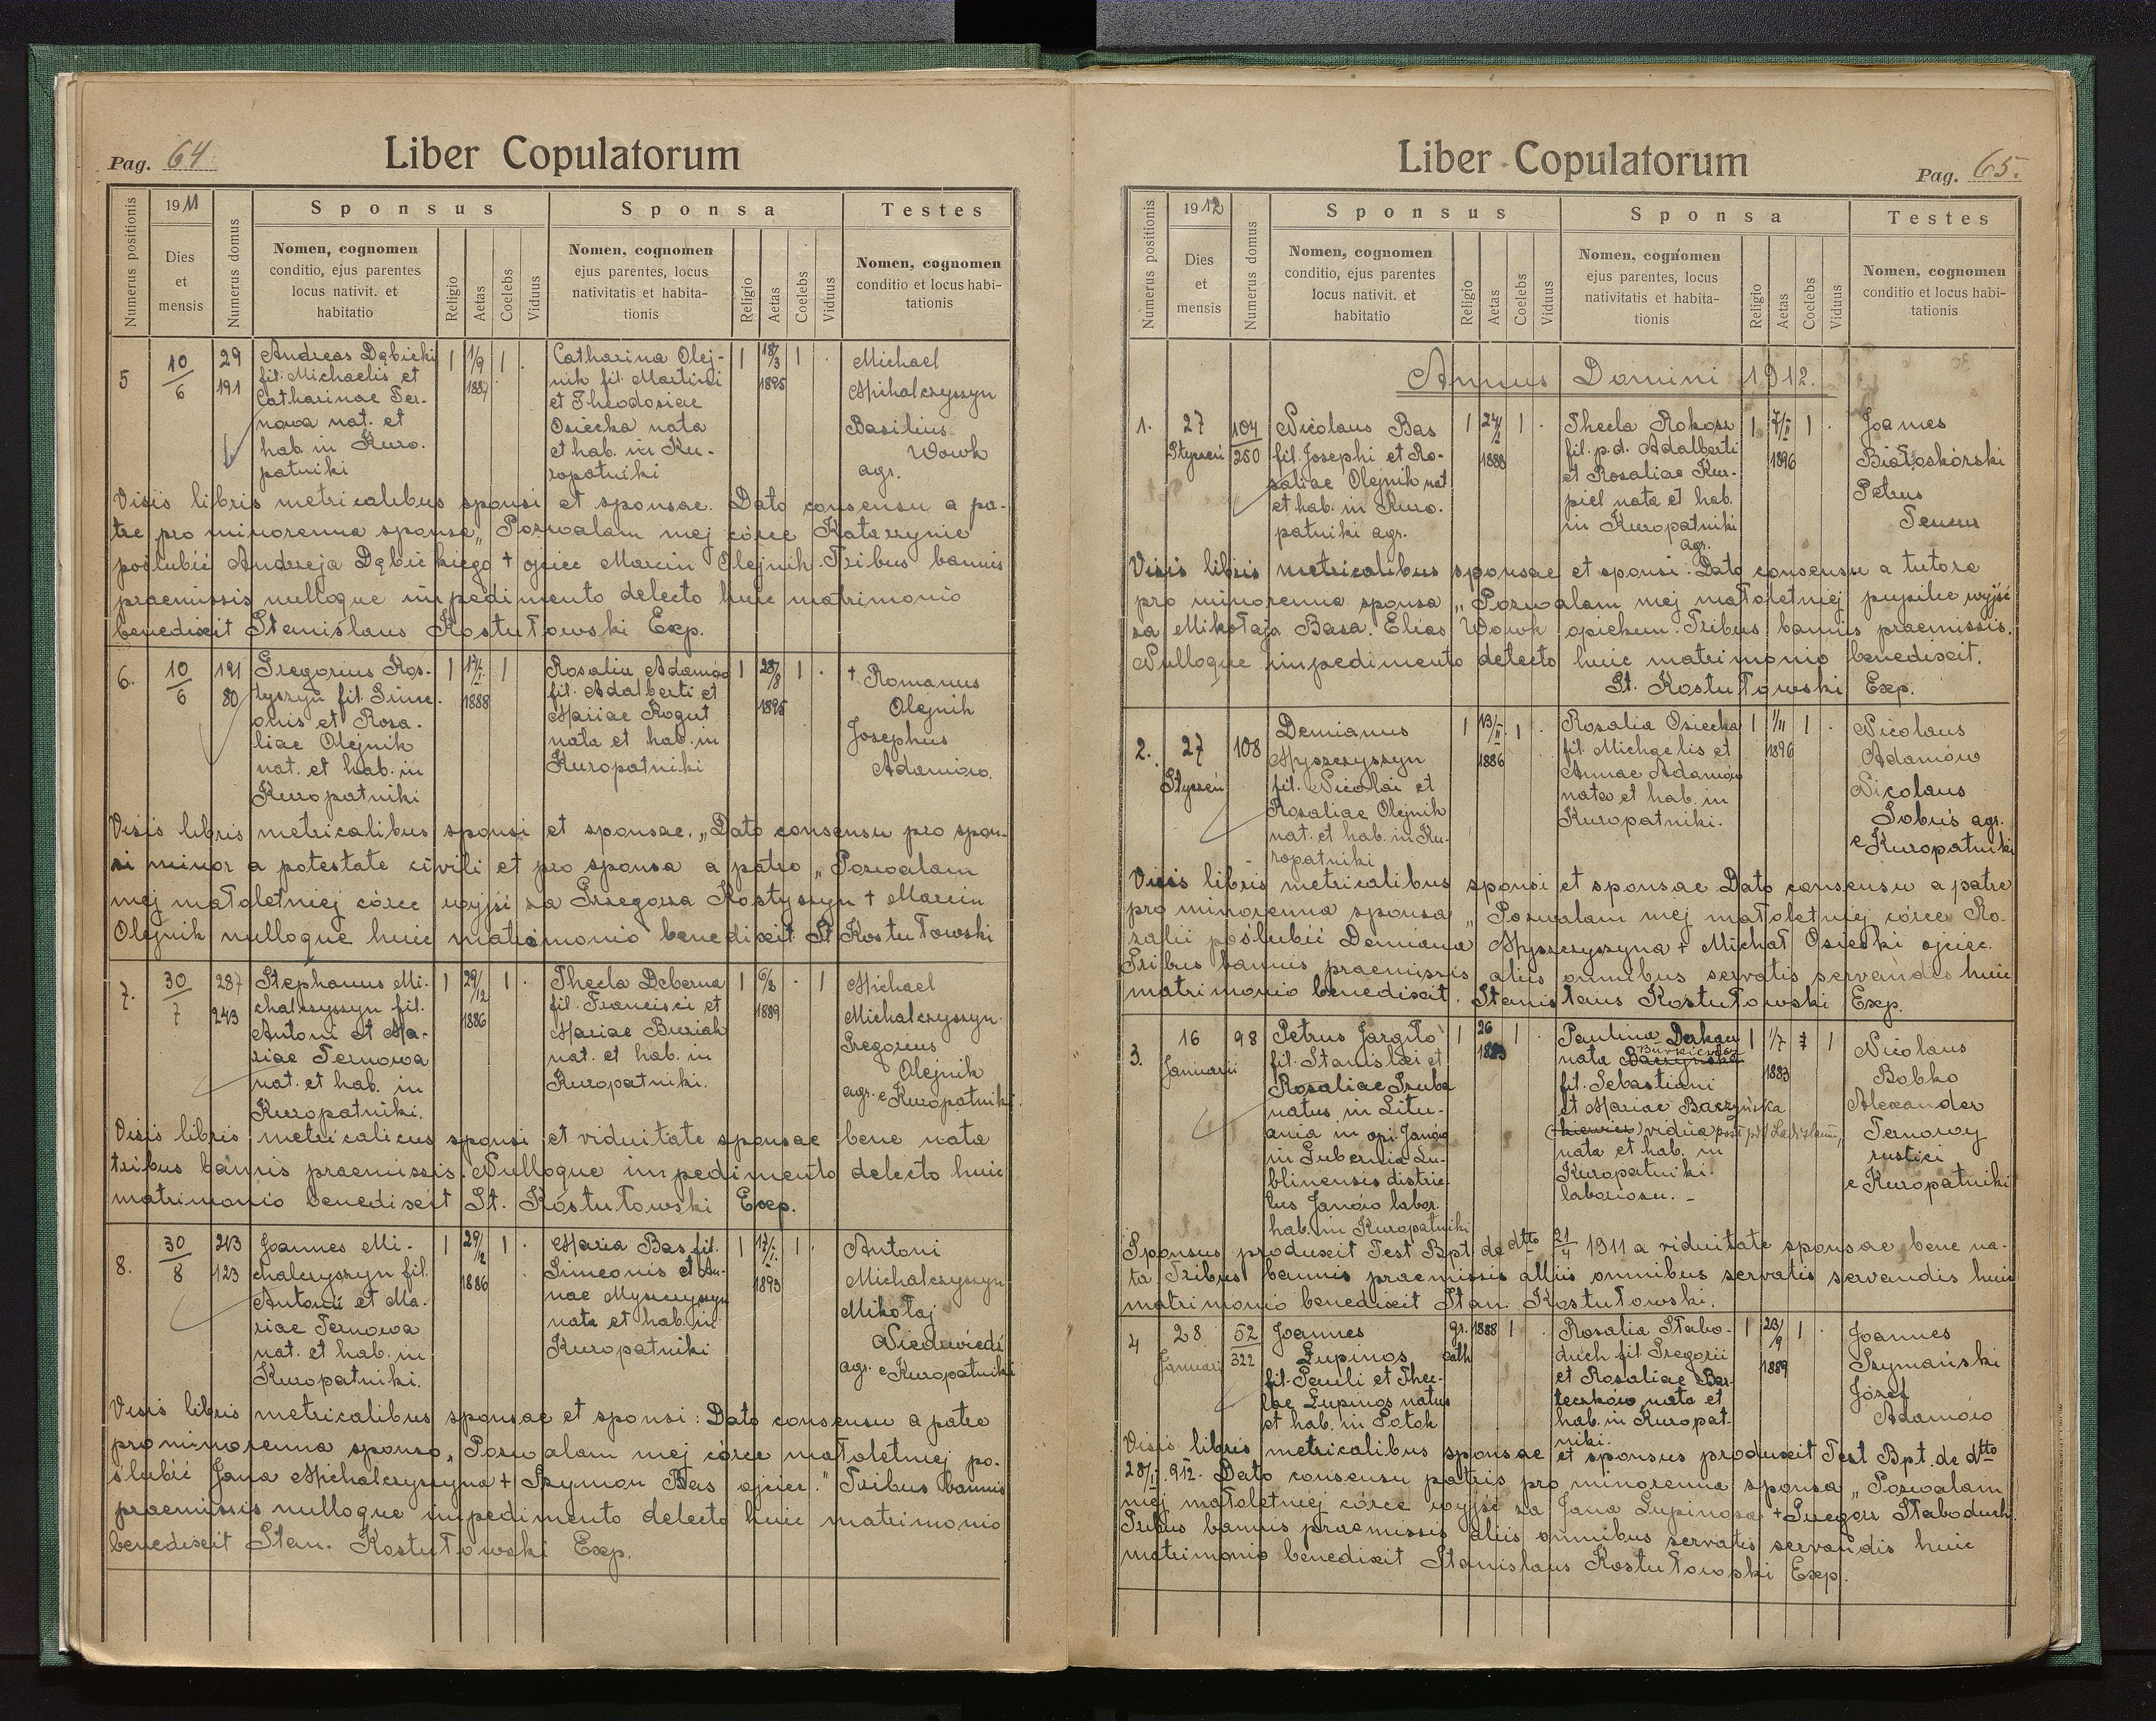 Pag. 64
Liber Copulatorum
Numerus positionis
1911
Dies
et
mensis
Numerus domus
Sponsus
Nomen, cognomen
conditio, ejus parentes
locus nativit. et
habitatio
Religio
Aetas
Coelebs
Viduus
Sponsa
Nomen, cognomen
ejus parentes, locus
nativitatis et habita-
tionis
Religio
Aetas
Coelebs
Viduus
Testes
Nomen, cognomen
conditio et locus habi-
tationis
5
10/6
29
191
Andreas Dębicki
fil. Michaelis et
Catharinae Ter-
nowa nat. et
hab. in Kuro-
patniki
1
1/9
1887
1
Catharina Olej-
nik fil. Martini
et Theodosiae
Osiecka nata
et hab. in Ku-
ropatniki
1
18/3
1895
1
Michael
Michalczyszyn
Basilius
Wowk
agr.
Visis libris metricalibus sponsi et sponsae. Dato consensu a pa-
tre pro minorenna sponsa „Pozwalam mej córce Katarzynie
poślubić Andrzeja Dębickiego + ojciec Marcin Olejnik. Tribus bannis
praemissis nulloque impedimento delecto huic matrimonio
benedixit Stanislaus Kostułowski Exp.
6.
10/6
191
80
Gregorius Kos-
tyszyn fil. Sime-
onis et Rosa-
liae Olejnik
nat. et hab. in
Kuropatniki
1
17/I
1888
1
Rosalia Adamów
fil. Adalberti et
Mariae Rogut
nata et hab. in
Kuropatniki
1
28/8
1895
1
+ Romanus
Olejnik
Josephus
Adamów.
Visis libris metricalibus sponsi et sponsae. „Dato consensu pro spon-
si minor a potestate civili et pro sponsa a patre „Pozwalam
mej małoletniej córce wyjść za Grzegorza Kostyszyn + Marcin
Olejnik nulloque huic matrimonio benedixit St Kostułowski
7.
30/7
287
243
Stephanus Mi-
chalczyszyn fil.
Antoni et Ma-
riae Ternowa
nat. et hab. in
Kuropatniki.
1
29/12
1886
1
Thecla Deberna
fil. Francisci et
Mariae Buziak
nat. et hab. in
Kuropatniki.
1
6/3
1889
1
Michael
Michalczyszyn
Gregorius
Olejnik
agr. e Kuropatniki.
Visis libris metricalicus sponsi et viduitate sponsae bene nata
tribus bannis praemissis. Nulloque impedimento delecto huic
matrimonio benedixit St. Kostułowski Exp.
8.
30/8
213
123
Joannes Mi-
chalczyszyn fil.
Antonii et Ma-
riae Ternowa
nat. et hab. in
Kuropatniki.
1
29/12
1886
1
Maria Bas fil.
Simeonis et An-
nae Myszczyszyn
nata et hab. in
Kuropatniki
1
17/I
1893
1
Antoni
Michalczyszyn
Mikołaj
Niedzwiedź
agr. e Kuropatniki
Visis libris metricalibus sponsae et sponsi: Dato consensu a patre
pro minorenna sponsa „Pozwalam mej córce małoletniej po-
ślubić Jana Michalczyszyna + Szymon Bas ojciec." Tribus bannis
praemissis nulloque impedimento delecto huic matrimonio
benedixit Stan. Kostułowski Exp.
Liber Copulatorum
Pag. 65.
Numerus positionis
1912
Dies
et
mensis
Numerus domus
Sponsus
Nomen, cognomen
conditio, ejus parentes
locus nativit. et
habitatio
Religio
Aetas
Coelebs
Viduus
Sponsa
Nomen, cognomen
ejus parentes, locus
nativitatis et habita-
tionis
Religio
Aetas
Coelebs
Viduus
Testes
Nomen, cognomen
conditio et locus habi-
tationis
Annus Domini 1912.
1.
27
Styczeń
104
250
Nicolaus Bas
fil. Josephi et Ro-
saliae Olejnik nat
et hab. in Kuro-
patniki agr.
1
1888
1
Thecla Rokosz
fil. p.d. Adalberti
et Rosaliae Kur-
piel nata et hab.
in Kuropatniki
agr.
1
7/II
1896
1
Joannes
Białoskórski
Petrus
Visis libris metricalibus sponsae et sponsi. Dato consensu a tutore
pro minorenna sponsa „Pozwalam mej małoletniej pupilce wyjść
za Mikołaja Basa. Elias Wowk opiekun. Tribus bannis praemissis.
Nulloque impedimento detecto huic matrimonio benedixit.
St. Kostułowski Exp.
2.
27
Styczeń
108
Demianus
Myszczyszyn
fil. Nicolai et
Rosaliae Olejnik
nat. et hab. in Ku-
ropatniki
1
13/II
1886
1
Rosalia Osiecka
fil. Michaelis et
Annae Adamów
nata et hab. in
Kuropatniki.
1
1/11
1896
1
Nicolaus
Adamów
Nicolaus
Sobuś agr.
e Kuropatniki
Visis libris metricalibus sponsi et sponsae Dato consensu a patre
pro minorenna sponsa „Pozwalam mej małoletniej córce Ro-
zalii poślubić Demiana Myszczyszyna + Michał Osiecki ojciec.
Tribus bannis praemissis aliis omnibus servatis servandis huic
matrimonio benedixit. Stanislaus Kostułowski Exp.
3.
16
Januarii
98
Petrus Jargiło
fil. Stanislai et
Rosaliae Szuba
natus in Litu-
ania in opi. Janów
in Gubernia Lu-
blinensis distric-
tus Janów labor.
hab. in Kuropatniki
1
26
1883
1
Paulina Derkacz
Burkiewicz
nata Baczyńska
fil. Sebastiani
et Mariae Baczyńska
(kiewicz) vidua post pdf Ladislaum,
nata et hab. in
Kuropatniki.
laboriosu. -
1
1/7
1883
1
Nicolaus
Bobko
Alexander
Ternowy
rustici
e Kuropatniki
Sponsus produxit Test Bpt. de dtto 21/4 1911 a viduitate sponsae bene na-
ta. Tribus bannis praemissis aliis omnibus servatis servandis huic
matrimonio benedixit Stan. Kostułowski.
4
28
Januari
52
322
Joannes
Łupinos
fil. Pauli et Thec-
lae Łupinos natus
et hab. in Potok
gr.
cath
1888
1
Rosalia Słabo-
duch fil. Gregorii
et Rosaliae Bar-
teczków nata et
hab. in Kuropat-
niki.
1
23/9
1889
1
Joannes
Szymański
Józef
Adamów
Visis libris metricalibus sponsae et sponsus produxit Test Bpt. de dtto
28/I 912. Dato consensu patris pro minorenna sponsa „Pozwalam
mej małoletniej córce wyjść za Jana Łupinosa + Grzegorz Słaboduch
Tribus bannis praemissis aliis omnibus servatis servandis huic
matrimonio benedixit Stanislaus Kostułowski Exp.